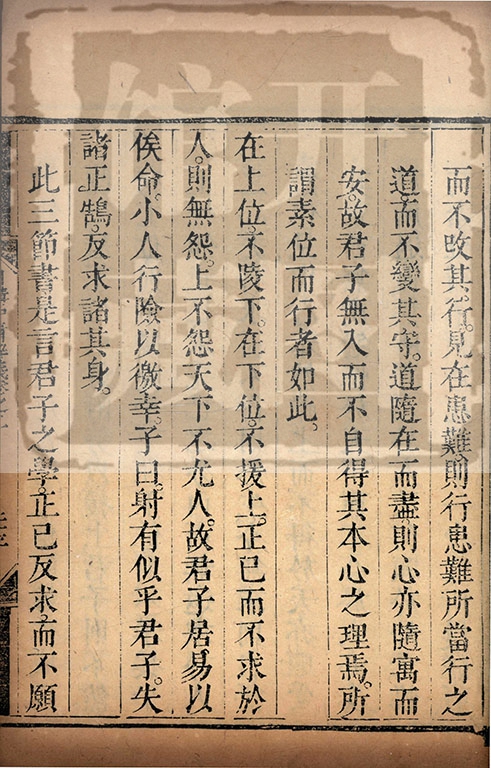 而不改其行見在患難則行患難所當行之
道而不變其守道隨在而盡則心亦隨寓而
安故君子無入而不自得其本心之理焉所
謂素位而行者如此
在上位不陵下在下位不援上正己而不求於
人則無怨上不怨天下不尤人故君子居易以
俟命小人行險以徼幸子曰射有似乎君子失
諸正鵠反求諸其身
此三節書是言君子之學正己反求而不願